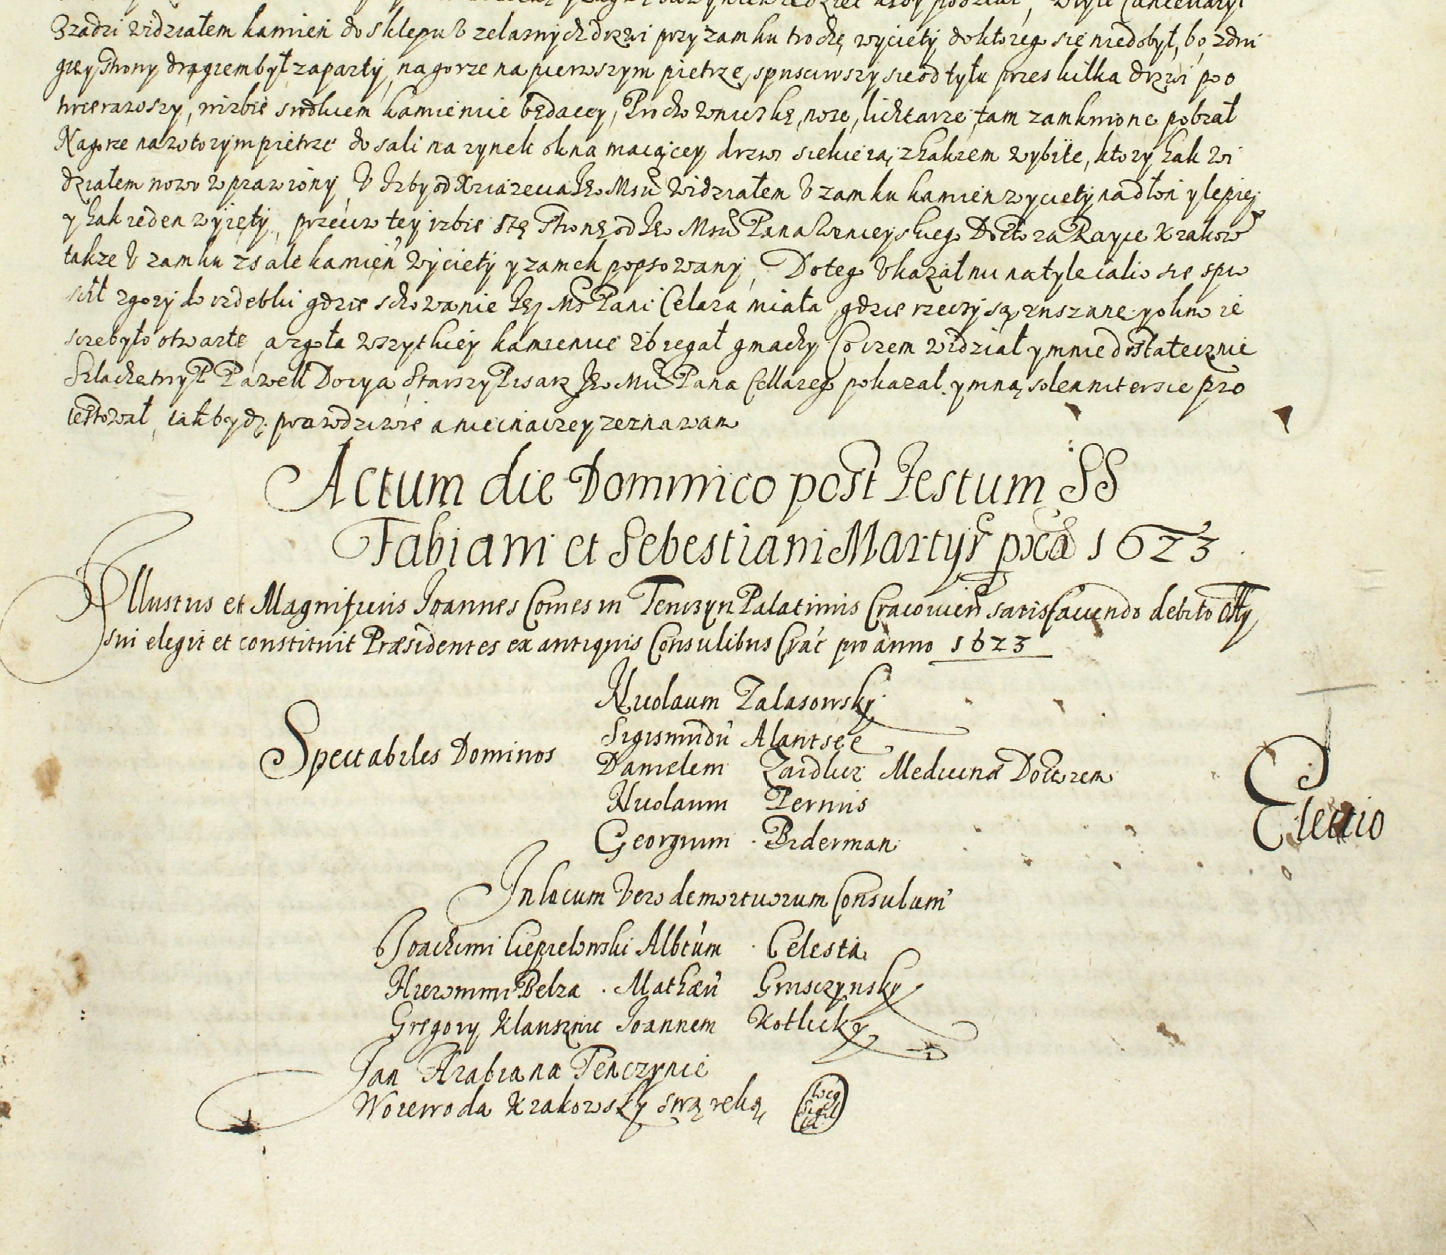 Zradzi widziałem kamien do sklepu v zelaznych drzwi przy zamku trochę wycięty do ktorego się niedobył, bo zdru
giey strony drągiem był zaparty, na gorze na pierwszym pietrze, spusciwszy sie od tyłu przes kilka drzwi po
kamienice będącey, noze, lichtarze tam zamknione pobrał
Na gorze na wtorym pietrze do sali na rynek okna maiącey drzwi siekierą z hakiem wybite, ktory hak wi
działem nowo wprawiony, V Izby od Xiązecia Je° Msci widziałem v zamku kamien wycięty na dłoń y lepiey
y hak ieden wyięty, przeciw tey izbie stę stronę od Je° Msci Pana Doctora Rayce Krakow
takze v zamku z sale kamięń wycięty y zamek popsowany, Do tego vkazał mi na tyle iako się spu
scił zgory do izdebki gdzie schowanie Jey Msc Pani Celara miała, gdzie rzeczy są ruszane y okno ie
scze było otwarte, a zgoła wszytkiey kamienice zbiegał gmachy Co czem widział y mnie dostatecznie
Slachetny P Pawell Dorya Starszy Pisarz Je° Mci Pana Cellarego pokazał. y mną solenniter sie pro
testował, iak bydz prawdziwie a nie inaczey zeznawam
Actum die Dominico post Festum SS
Fabiani et Sebestiani Martyr pxa 1623
Illustris et Magnificus Joannes Comes in Tenczyn Palatinus Cracovien satisfaciendo debito offy
sui elegit et constituit Præsidentes ex antiquis Consulibus Crac pro anno 1623
Nicolaum Zalasowsky
Spectabiles Dominos
Sigismudū Alantsee
Danielem Zaidlicz Medicinæ Doctorem
Nicolaum Pernus
Georgium Biderman
Electio
In locum vero demortuorum Consulum
Joachimi Ciepielowski Albtum Celesta
Hieronimi Pelza Mathæū Grusczynsky
Gregory Klausznic Joannem Kotlicky
Jan Hrabia na Tenczynie
Woiewoda Krakowsky swą ręką
Locg
Sigil
li